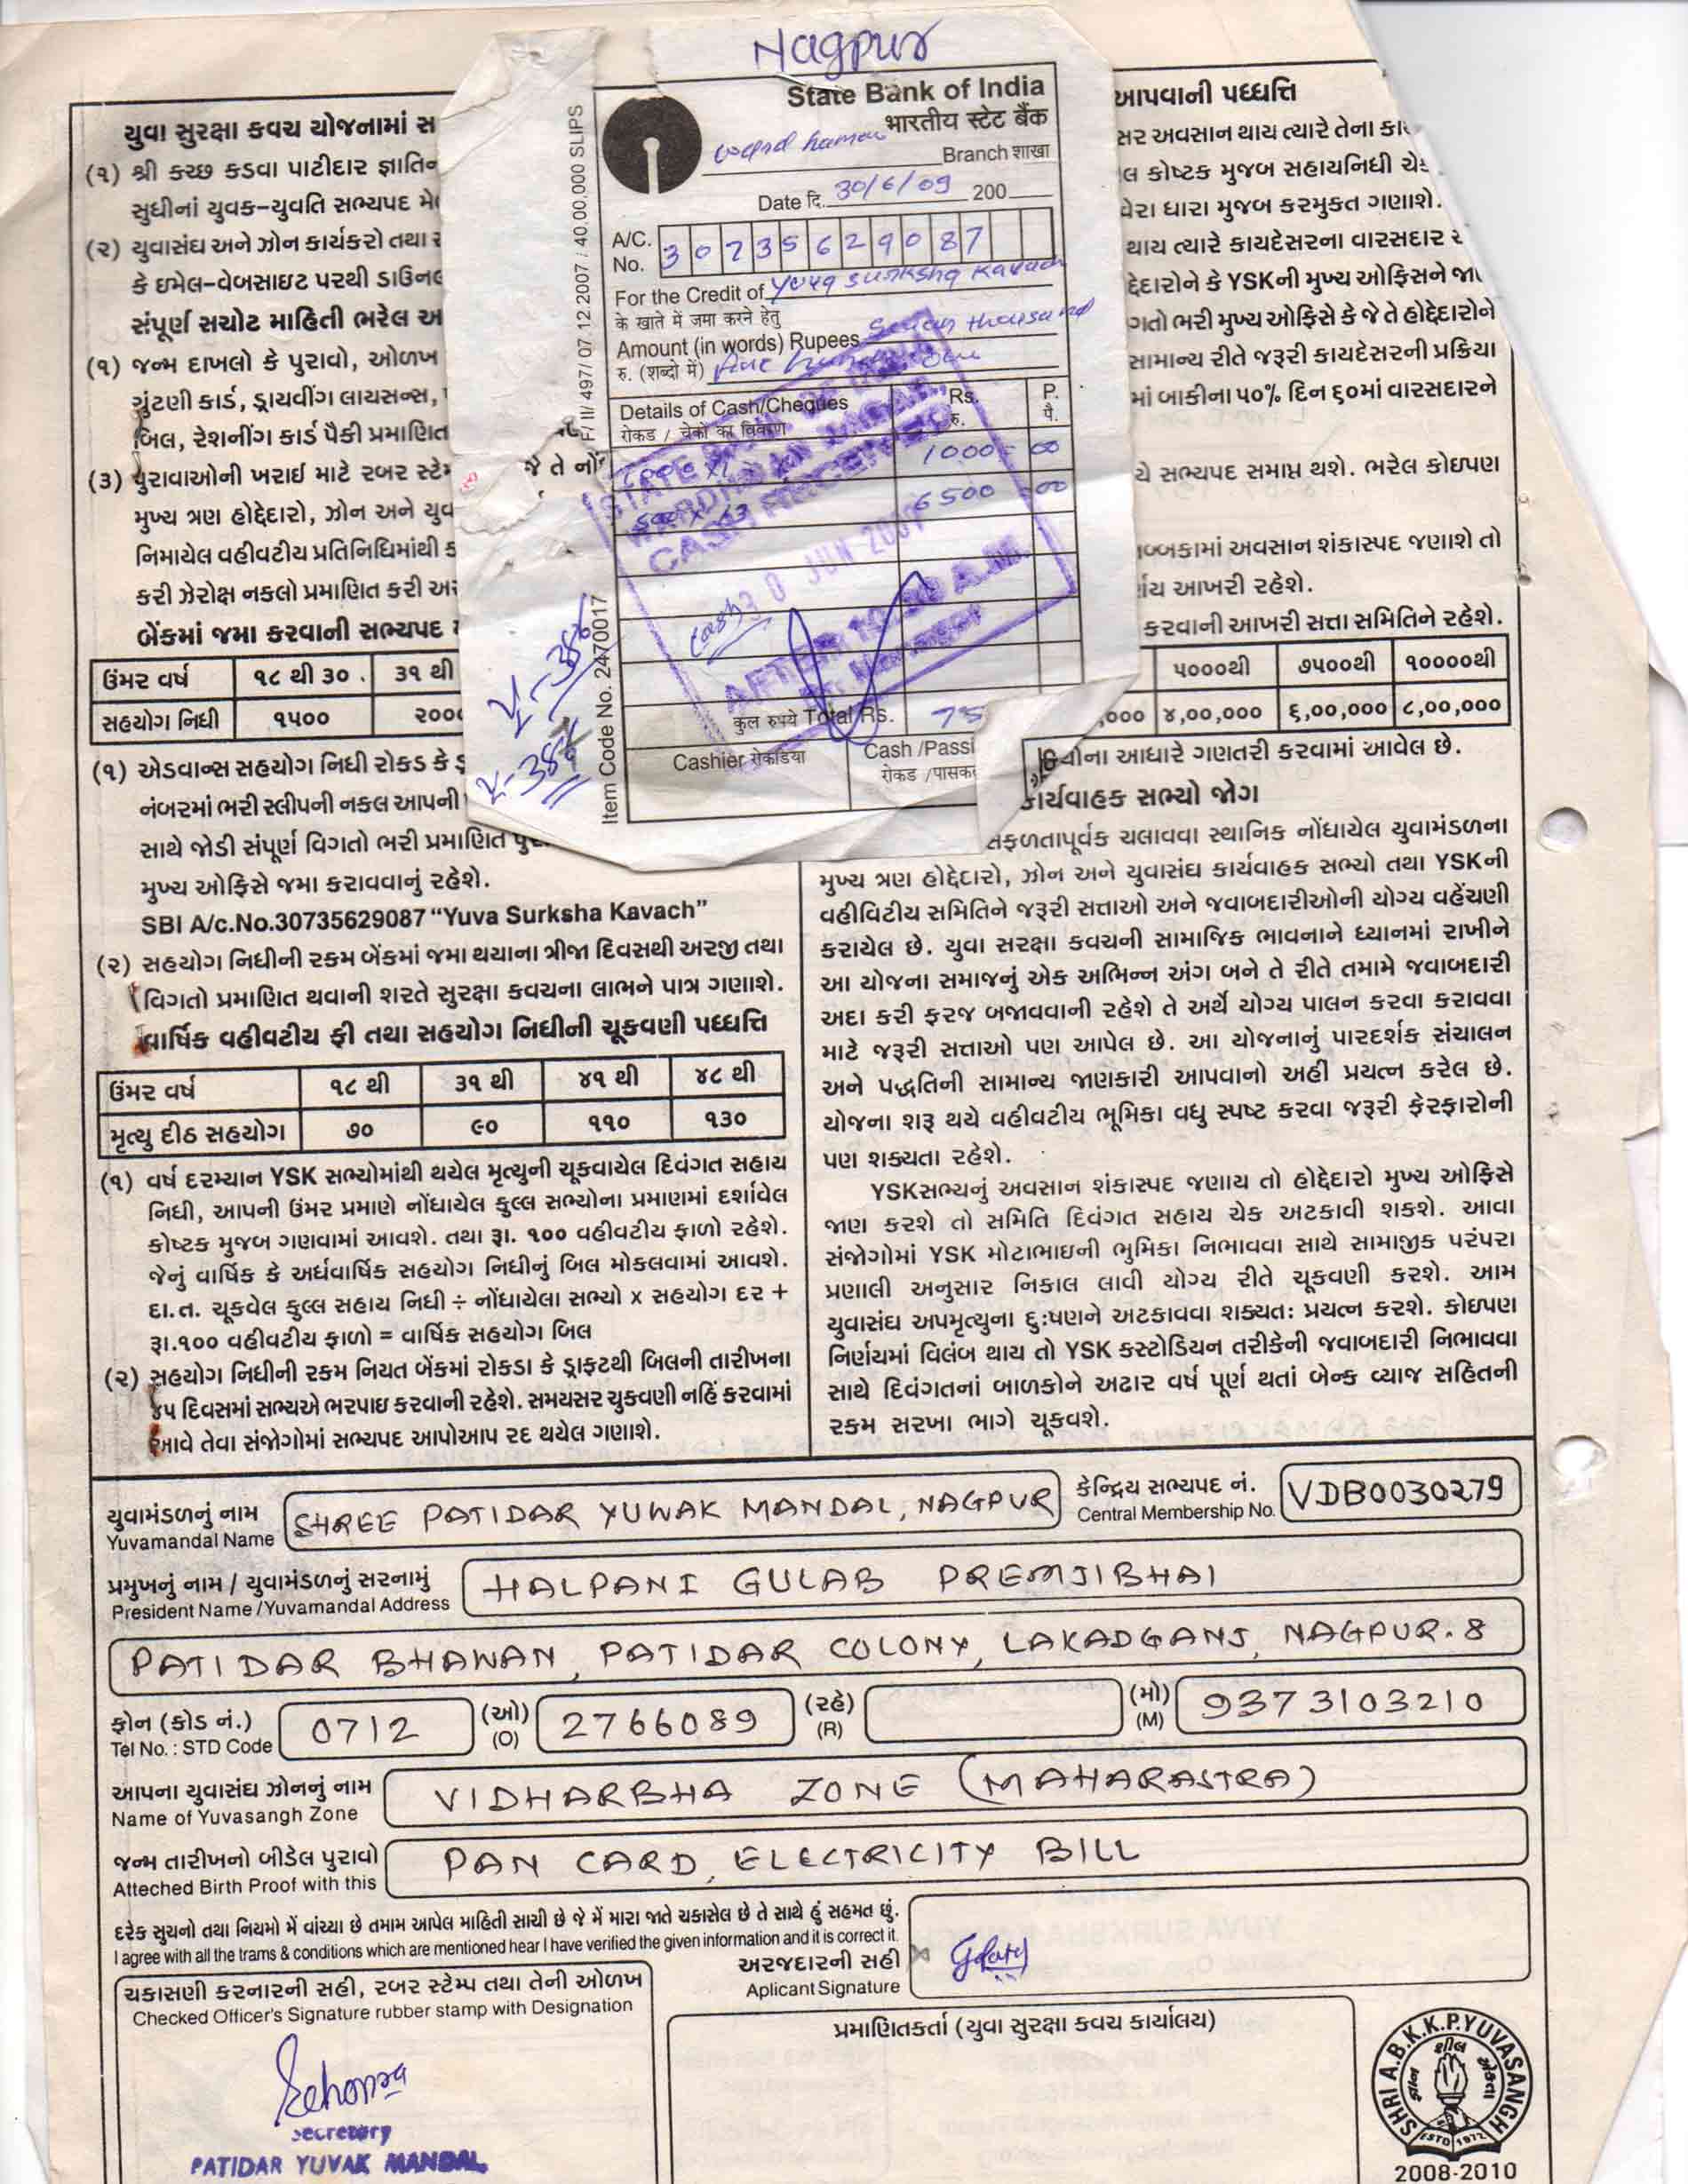 Nagpur
State Bank of India
भारतीय स्टेट बैंक
Branch शाखा
Date दि. 30/6/09 200
A/C. No. 30735629087
For the Credit of Yuva Surksha Kavach
के खाते में जमा करने हेतु
Amount (in words) Rupees Seven thousand
रु. (शब्दो में) five
Details of Cash/Cheques Rs. P.
रोकड / चेकों का विवरण रु. पै.
1000 x 1 1000=00
500 x 13 6500=00
Cash
STATE BANK OF INDIA
WARDHAMAN NAGAR,
CASH RECEIVED
30 JUN 2009
AFTER
कुल रुपये Total Rs. 75
Cashier रोकडिया
Cash /Passi
रोकड /पासक
F/ II/ 497/ 07 12 2007 / 40,00,000 SLIPS
Item Code No. 2470017
યુવા સુરક્ષા કવચ યોજનામાં સ
(૧) શ્રી કચ્છ કડવા પાટીદાર જ્ઞાતિન
સુધીનાં યુવક-યુવતિ સભ્યપદ મે
(૨) યુવાસંઘ અને ઝોન કાર્યકરો તથા
કે ઇમેલ-વેબસાઇટ પરથી ડાઉનલ
સંપૂર્ણ સચોટ માહિતી ભરેલ અ
(૧) જન્મ દાખલો કે પુરાવો, ઓળખ
ચુંટણી કાર્ડ, ડ્રાયવીંગ લાયસન્સ,
બિલ, રેશનીંગ કાર્ડ પૈકી પ્રમાણિત
જે તે નોં
(૩) પુરાવાઓની ખરાઈ માટે રબર સ્ટે
મુખ્ય ત્રણ હોદ્દેદારો, ઝોન અને યુવ
નિમાયેલ વહીવટીય પ્રતિનિધિમાંથી ક
કરી ઝેરોક્ષ નકલો પ્રમાણિત કરી અ
બેંકમાં જમા કરવાની સભ્યપદ
ઉંમર વર્ષ ૧૮ થી ૩૦ ૩૧ થી
સહયોગ નિધી ૧૫૦૦ ૨૦૦૦
(૧) એડવાન્સ સહયોગ નિધી રોકડ કે ડ્ર
નંબરમાં ભરી સ્લીપની નકલ આપની
સાથે જોડી સંપૂર્ણ વિગતો ભરી પ્રમાણિત પુ
મુખ્ય ઓફિસે જમા કરાવવાનું રહેશે.
SBI A/c.No.30735629087 “Yuva Surksha Kavach”
(૨) સહયોગ નિધીની રકમ બેંકમાં જમા થયાના ત્રીજા દિવસથી અરજી તથા
વિગતો પ્રમાણિત થવાની શરતે સુરક્ષા કવચના લાભને પાત્ર ગણાશે.
વાર્ષિક વહીવટીય ફી તથા સહયોગ નિધીની ચૂકવણી પધ્ધતિ
ઉંમર વર્ષ ૧૮ થી ૩૧ થી ૪૧ થી ૪૮ થી
મૃત્યુ દીઠ સહયોગ ૭૦ ૯૦ ૧૧૦ ૧૩૦
(૧) વર્ષ દરમ્યાન YSK સભ્યોમાંથી થયેલ મૃત્યુની ચૂકવાયેલ દિવંગત સહાય
નિધી, આપની ઉંમર પ્રમાણે નોંધાયેલ કુલ્લ સભ્યોના પ્રમાણમાં દર્શાવેલ
કોષ્ટક મુજબ ગણવામાં આવશે. તથા રૂા. ૧૦૦ વહીવટીય ફાળો રહેશે.
જેનું વાર્ષિક કે અર્ધવાર્ષિક સહયોગ નિધીનું બિલ મોકલવામાં આવશે.
દા.ત. ચૂકવેલ કુલ્લ સહાય નિધી ÷ નોંધાયેલા સભ્યો x સહયોગ દર +
રૂા.૧૦૦ વહીવટીય ફાળો = વાર્ષિક સહયોગ બિલ
(૨) સહયોગ નિધીની રકમ નિયત બેંકમાં રોકડા કે ડ્રાફટથી બિલની તારીખના
૪૫ દિવસમાં સભ્યએ ભરપાઇ કરવાની રહેશે. સમયસર ચુકવણી નહિં કરવામાં
આવે તેવા સંજોગોમાં સભ્યપદ આપોઆપ રદ થયેલ ગણાશે.
આપવાની પધ્ધતિ
સર અવસાન થાય ત્યારે તેના કા
લ કોષ્ટક મુજબ સહાયનિધી ચે
વેરા ધારા મુજબ કરમુકત ગણાશે.
થાય ત્યારે કાયદેસરના વારસદાર
દ્દેદારોને કે YSKની મુખ્ય ઓફિસને જા
ગતો ભરી મુખ્ય ઓફિસે કે જે તે હોદ્દેદારોને
સામાન્ય રીતે જરૂરી કાયદેસરની પ્રક્રિયા
માં બાકીના ૫૦% દિન ૬૦માં વારસદારને
યે સભ્યપદ સમાપ્ત થશે. ભરેલ કોઇપણ
બ્બકામાં અવસાન શંકાસ્પદ જણાશે તો
ર્ણય આખરી રહેશે.
કરવાની આખરી સત્તા સમિતિને રહેશે.
૫૦૦૦થી ૭૫૦૦થી ૧૦૦૦૦થી
,૦૦૦ ૪,૦૦,૦૦૦ ૬,૦૦,૦૦૦ ૮,૦૦,૦૦૦
ના આધારે ગણતરી કરવામાં આવેલ છે.
કાર્યવાહક સભ્યો જોગ
સફળતાપૂર્વક ચલાવવા સ્થાનિક નોંધાયેલ યુવામંડળના
મુખ્ય ત્રણ હોદ્દેદારો, ઝોન અને યુવાસંઘ કાર્યવાહક સભ્યો તથા YSKની
વહીવિટીય સમિતિને જરૂરી સત્તાઓ અને જવાબદારીઓની યોગ્ય વહેંચણી
કરાયેલ છે. યુવા સરક્ષા કવચની સામાજિક ભાવનાને ધ્યાનમાં રાખીને
આ યોજના સમાજનું એક અભિન્ન અંગ બને તે રીતે તમામે જવાબદારી
અદા કરી ફરજ બજાવવાની રહેશે તે અર્થે યોગ્ય પાલન કરવા કરાવવા
માટે જરૂરી સત્તાઓ પણ આપેલ છે. આ યોજનાનું પારદર્શક સંચાલન
અને પદ્ધતિની સામાન્ય જાણકારી આપવાનો અહી પ્રયત્ન કરેલ છે.
યોજના શરૂ થયે વહીવટીય ભૂમિકા વધુ સ્પષ્ટ કરવા જરૂરી ફેરફારોની
પણ શક્યતા રહેશે.
YSKસભ્યનું અવસાન શંકાસ્પદ જણાય તો હોદ્દેદારો મુખ્ય ઓફિસે
જાણ કરશે તો સમિતિ દિવંગત સહાય ચેક અટકાવી શકશે. આવા
સંજોગોમાં YSK મોટાભાઇની ભુમિકા નિભાવવા સાથે સામાજીક પરંપરા
પ્રણાલી અનુસાર નિકાલ લાવી યોગ્ય રીતે ચૂકવણી કરશે. આમ
યુવાસંઘ અપમૃત્યુના દુઃષણને અટકાવવા શક્યતઃ પ્રયત્ન કરશે. કોઇપણ
નિર્ણયમાં વિલંબ થાય તો YSK કસ્ટોડિયન તરીકેની જવાબદારી નિભાવવા
સાથે દિવંગતનાં બાળકોને અઢાર વર્ષ પૂર્ણ થતાં બેન્ક વ્યાજ સહિતની
રકમ સરખા ભાગે ચૂકવશે.
યુવામંડળનું નામ SHREE PATIDAR YUWAK MANDAL, NAGPUR કેન્દ્રિય સભ્યપદ નં. VDB0030279
Yuvamandal Name Central Membership No.
પ્રમુખનું નામ / યુવામંડળનું સરનામું HALPANI GULAB PREMJIBHAI
President Name /Yuvamandal Address
PATIDAR BHAWAN, PATIDAR COLONY, LAKADGANJ, NAGPUR. 8
ફોન (કોડ નં.) 0712 (ઓ) 2766089 (રહે) (મો) 9373103210
Tel No. : STD Code (O) (R) (M)
આપના યુવાસંઘ ઝોનનું નામ VIDHARBHA ZONE (MAHARASTRA)
Name of Yuvasangh Zone
જન્મ તારીખનો બીડેલ પુરાવો PAN CARD, ELECTRICITY BILL
Atteched Birth Proof with this
દરેક સુચનો તથા નિયમો મેં વાંચ્યા છે તમામ આપેલ માહિતી સાચી છે જે મેં મારા જાતે ચકાસેલ છે તે સાથે હું સહમત છું.
I agree with all the trams & conditions which are mentioned hear I have verified the given information and it is correct it.
અરજદારની સહી
Aplicant Signature
ચકાસણી કરનારની સહી, રબર સ્ટેમ્પ તથા તેની ઓળખ
Checked Officer's Signature rubber stamp with Designation
Secretary
PATIDAR YUVAK MANDAL
પ્રમાણિતકર્તા (યુવા સુરક્ષા કવચ કાર્યાલય)
SHRI A.B.K.K.P.YUVASANGH
ESTD 1972
2008-2010